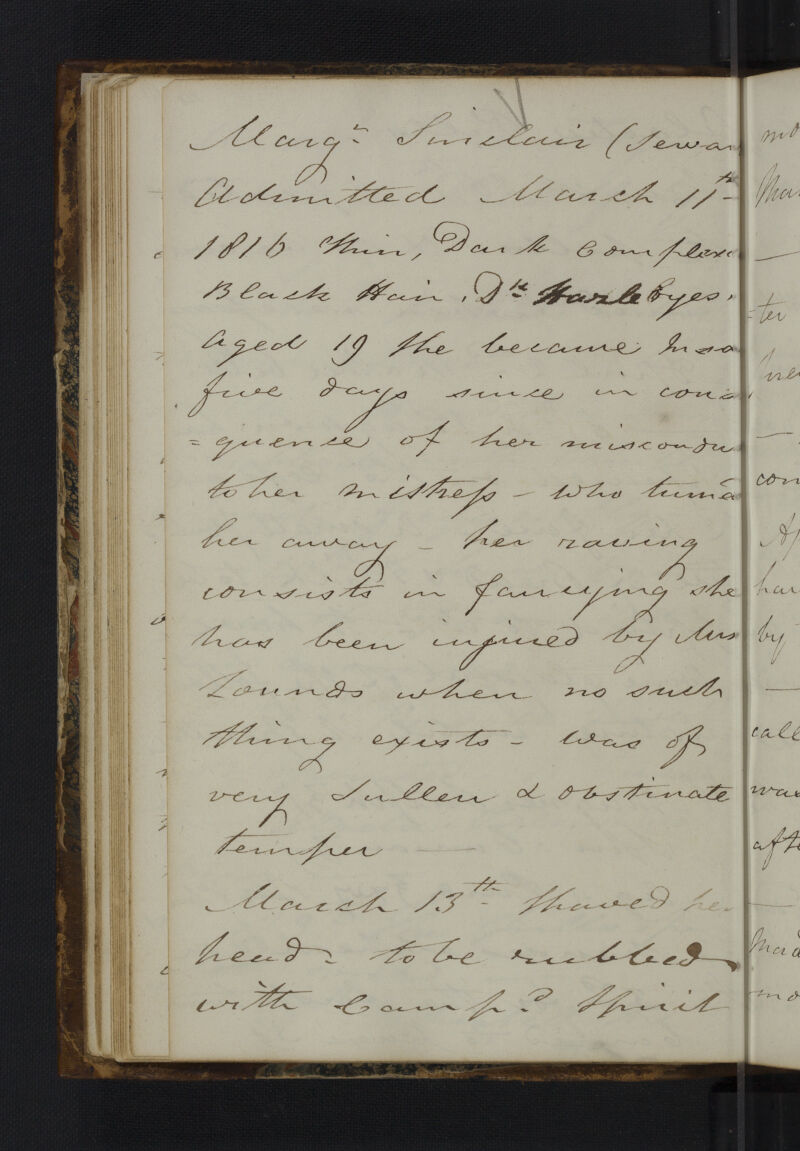 Marg.t Sinclair (Serva
Admitted March 11th
1816 Thin, Dark Complexi
Black Hair, Dk Hazle Eyes.
Aged 19 She became Insa
five days since in conse
=quence of her misconduc
to her mistress - who turn'd
her away - her raving
consists in fancying she
has been injured by Mrs
Lounds when no such
thing exists - was of
very Sullen & obstinate
temper —
March 13th Shaved her
head - to be rubbed
with Camp.d Spirit
mo
ter
con
by
call
was
afte
mo